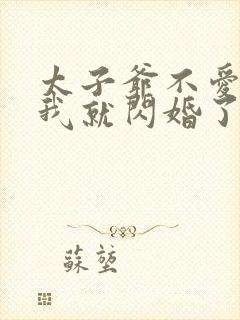 太子爺不愛
我就閃婚了
蘇堃